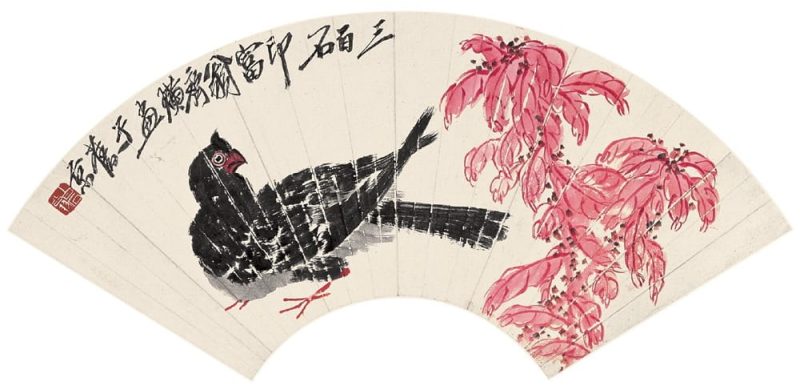 三百石印富翁齊璜畫于舊京